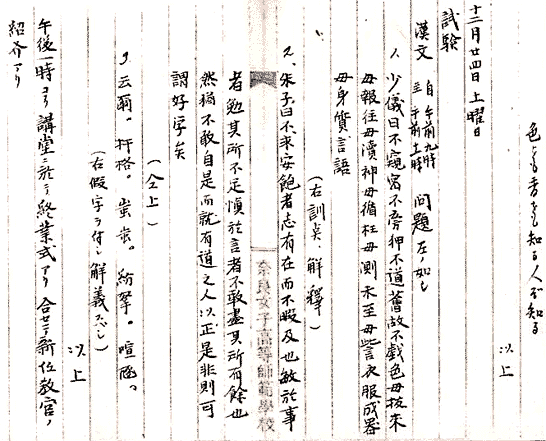 色をも香をも知る人ぞ知る
以上
十二月廿四日 土曜日
試験
漢文 自午前九時 至午前十時 問題左ノ如シ
1、少儀曰不窺密不旁狎不道舊故不戲色毋拔来
毋報往毋瀆神毋循枉毋測未至毋訾衣服成器
毋身質言語
(右訓点、解釋)
2、朱子曰不求安飽者志有在而不暇及也敏於事
者勉其所不足慎於言者不敢盡其所有餘也
然猶不敢自是而就有道之人以正是非則可
謂好学矣
(仝上)
3、云爾。扞格。蚩蚩。紛拏。喧豗。
(右假字ヲ付シ解義スベシ)
以上
午後一時ヨリ講堂ニ於テ終業式アリ合セテ新任教官ノ
紹介アリ
奈良女子高等師範學校